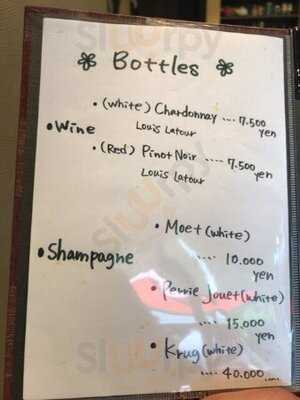 Bottles
• (White) Chardonnay .... 7.500 yen
Louis Latour
• Wine
• (Red) Pinot Noir .... 7.500 yen
Louis Latour
• Moet (white)
• Shampagne
.... 10.000 yen
• Perrie Jouet (white)
.... 15.000 yen
• Krug (white)
.... 40.000